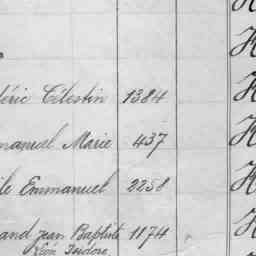 éric Célestin 1384 H
manuel Marie 437 H
ile Emmanuel 2258 H
and Jean Baptiste 1174 H
Léon Isidore